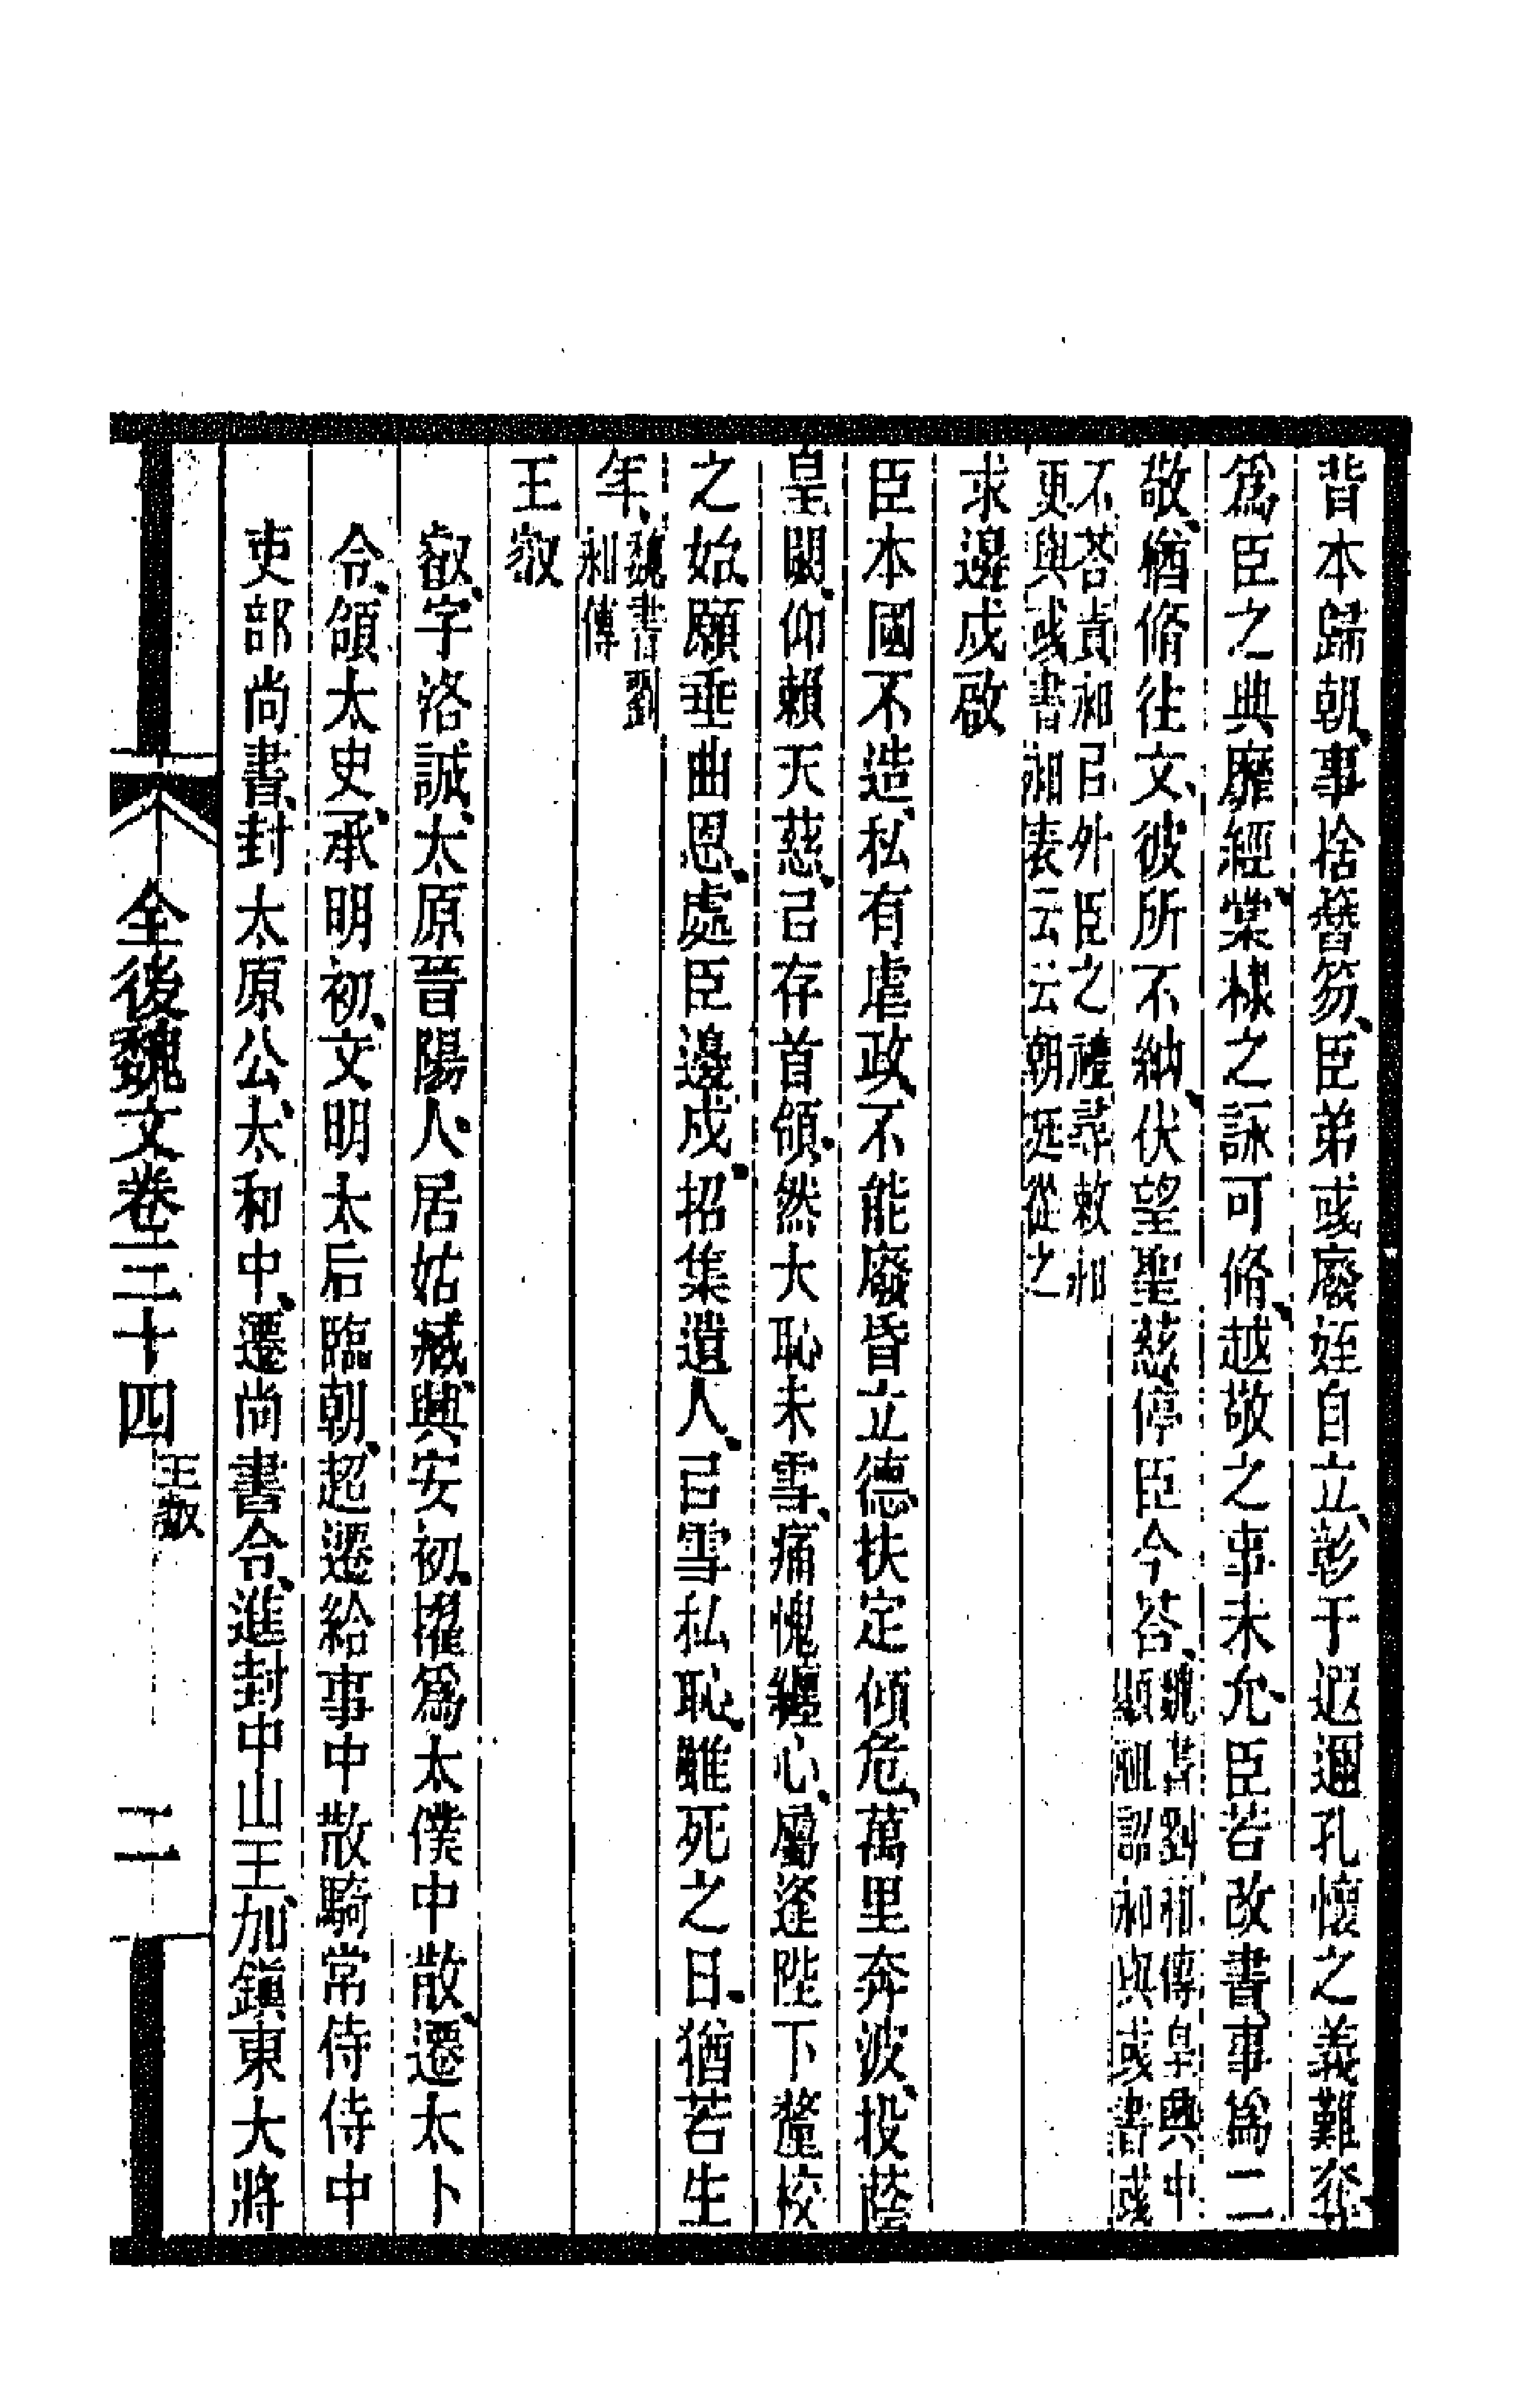 背本歸朝、事捨簪笏、臣弟彧廢姪自立、彰于遐邇、孔懷之義難奪、
爲臣之典靡經、棠棣之詠可脩、越敬之事未允、臣若改書、事爲二
敬、猶脩往文、彼所不納、伏望聖慈停臣今荅、魏書劉昶傳皇興中
顯祖詔昶與彧書彧
不荅責昶㠯外臣之禮尋敕昶
更與彧書昶表云云朝廷從之
求邊戍啟
臣本國不造、私有虐政、不能廢昏立德、扶定傾危、萬里奔波、投蔭
皇闕、仰賴天慈、㠯存首領、然大恥未雪、痛愧纏心、屬逢陛下釐校
之始、願垂曲恩、處臣邊戍、招集遺人、㠯雪私恥、雖死之日、猶若生
年、魏書劉
昶傳
王叡
叡、字洛誠、太原晉陽人、居姑臧、興安初、擢爲太僕中散、遷太卜
令、領太史、承明初、文明太后臨朝、超遷給事中散騎常侍侍中
吏部尚書、封太原公、太和中、遷尚書令、進封中山王、加鎮東大將
全後魏文卷三十四 王叡 二